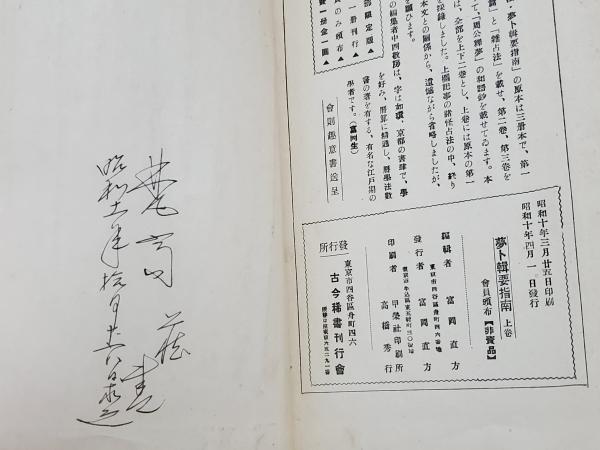 夢卜輯要指南」の原本は三册本で、第一
」と「雜占法」を載せ、第二卷、第三卷を
て、「周公釋夢」の和語鈔を載せてゐます。本
は、全部を上下二卷とし、上卷には原本の第一
を採錄しました。上欄記事の諸怪占法の中、終り
本文との關係から、遺憾ながら省略しましたが、
を願ひます。
の編集者中西敬房は、字は如環、京都の書肆で、學
を好み、曆算に精通し、曆學法數
書の著を有する、有名な江戸期の
學者です。(富岡生)
部限定版▲
一册刊行▲
員のみ頒布▲
一册金一圓▲
會則趣意書送呈
昭和十年三月廿五日印刷
昭和十年四月一日發行
夢卜輯要指南 上卷
會員頒布【非賣品】
編輯者 富岡直方
東京市四谷區舟町四六番地
發行者 富岡直方
印刷者 甲榮社印刷所
高橋秀行
發行所
東京市四谷區舟町四六
古今稀書刊行會
藏書
昭和十一年拾月